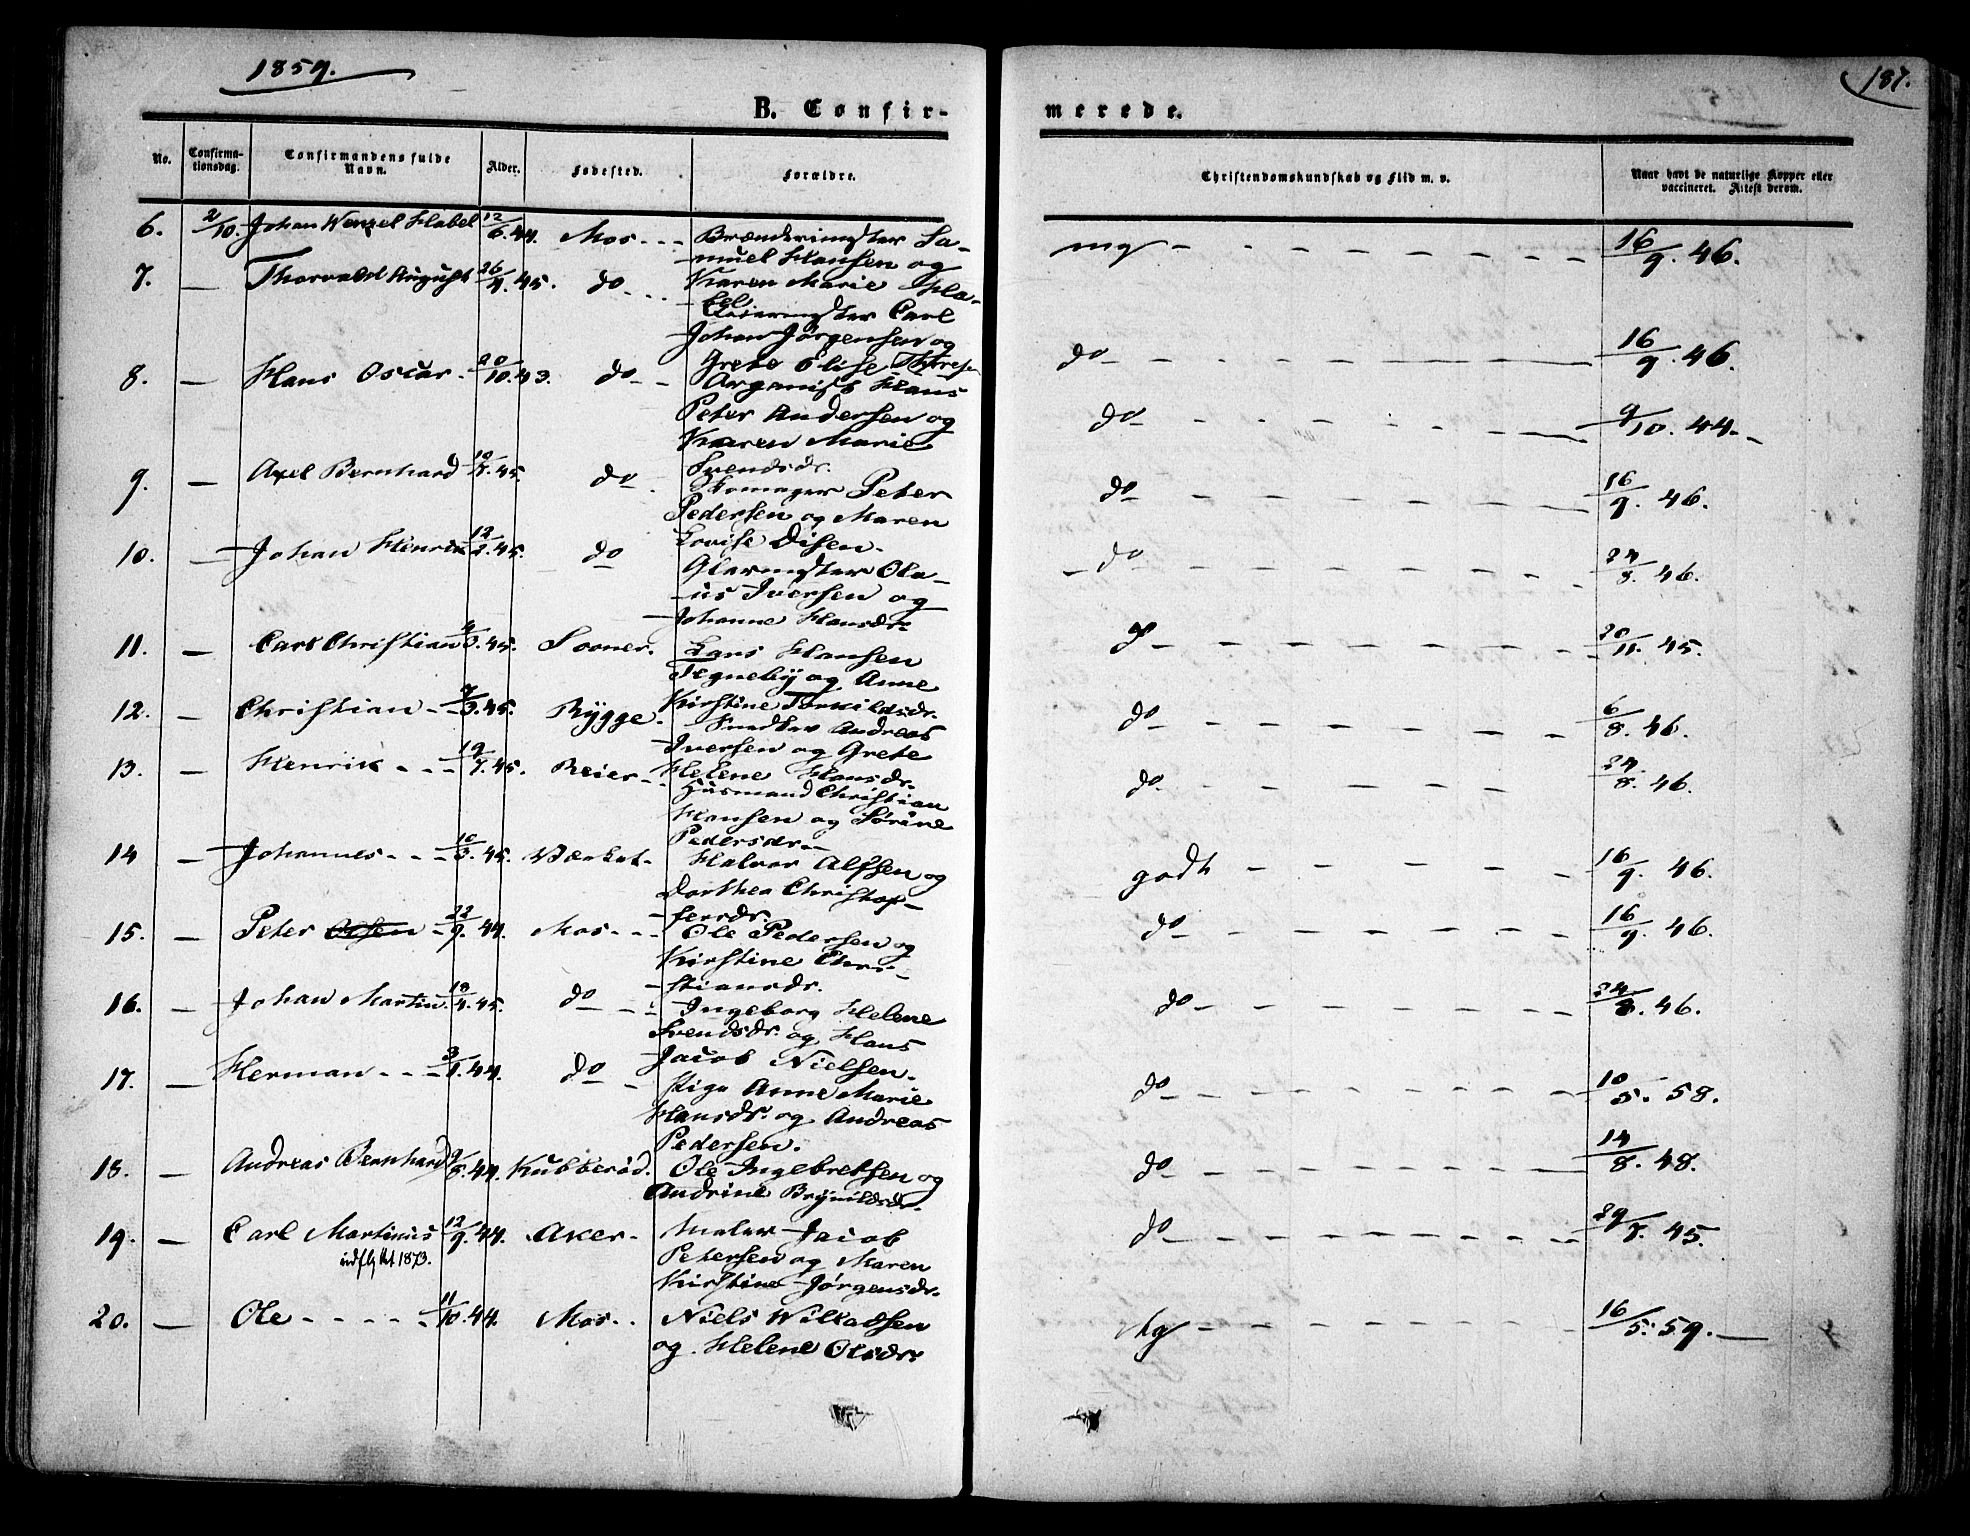 1859.
187.
B. Confir-
merede.
No.
Confirma-
tionsdag.
Confirmandens fulde
Navn.
Alder.
Fødested.
Forældre.
Christendomskundskab og Flid m. v.
Naar havt de naturlige Kopper eller
vaccineret. Attest derom.
6. 2/10. Johan Wenzel Habel 12/6.44. Mos - - - Brændermster Sa-
-muel Hansen og
Karen Marie Ha-
bel mg - - - - - - 16/9. 46.
7. — Thorvald August 26/4.45. do - - - Carl
Johan Jørgensen og
Grete Elise do - - - - - 16/9. 46.
8. — Hans Oscar - 20/10.43. do - - Organist Hans
Peter Andersen og
Karen Marie
Svendsdr. do - - - - - 9/10. 44. -
9. — Axel Bernhard 10/4.45. do - Skomager Peter
Pedersen og Maren
Lovise Disen. do - - - - - 16/9. 46.
10. — Johan Henrik 12/2.45. do Glarmster Ola-
-us Iversen og
Johanne Hansdr. - do - - - - - 24/8. 46.
11. — Carl Christian 4/3.45. Sooner. Lars Hansen
Tegneby og Anne
Kirstine Torkildsdr. do - - - - - 20/11. 45.
12. — Christian - - 7/3.45. Rygge - Snedker Andreas
Iversen og Grete
Helene Hansdr. do - - - - - 6/8. 46.
13. — Henrik - - - 19/4.45. Reier - Husmand Christian
Hansen og Sørine
Pedersdr. do - - - - - 24/8. 46.
14 — Johannes - - - 10/3.45. Værket - Halvor Alfsen og
Dorthea Christof-
-fersdr. godt - - - - - 16/9. 46.
15. — Peter Olsen - 22/9.44. Mos - - - Ole Pedersen og
Kirstine Chri-
-stiansdr. do - - - - - 16/9. 46.
16. — Johan Martin. 18/4.45. do - - - Ingeborg Helene
Svendsdr. og Hans
Jacob Nielsen. do - - - - - 24/8. 46.
17. — Herman - - - 3/1.44. do - - Pige Anne Marie
Hansdr. og Andreas
Pedersen. do - - - - - 10/5. 58.
18. — Andreas Bernhard 9/8.44. Kubberød. Ole Ingebretsen og
Andrine Brynildsdr. do - - - - - 14/8. 48.
19. — Carl Martinius 12/9.44. Aker - Maler Jacob
Petersen og Maren
Kirstine Jørgensdr. do - - - - - 29/7. 45.
udflyttet 1873.
20. — Ole - - - - - 11/10.44. Mos - - Niels Wilkadsen
og Helene Olsdr. Mg - - - - - 16/5. 59. —